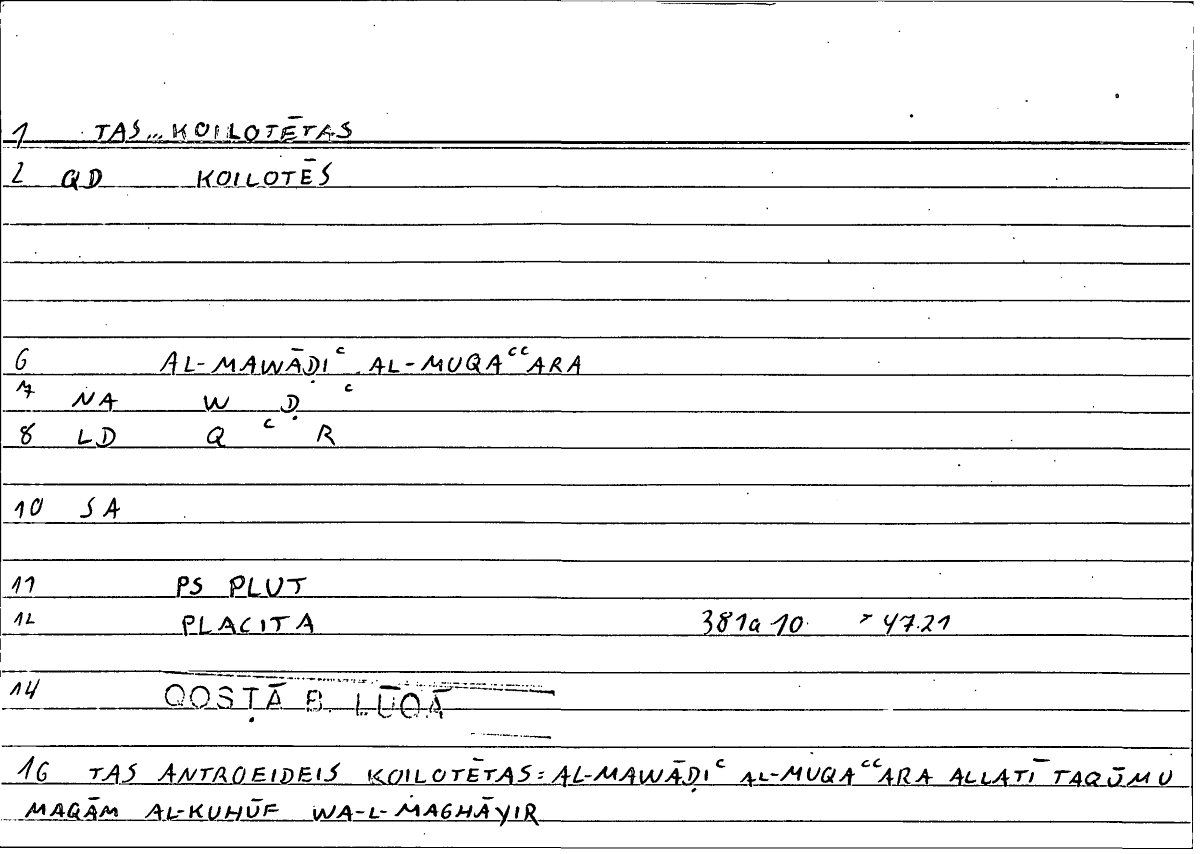 1 TAS... KOILOTĒTAS
2 QD KOILOTĒS
6 AL-MAWĀḌIᶜ AL-MUQAᶜᶜARA
7 NA W Ḍ ᶜ
8 LD Q ᶜ R
10 SA
11 PS PLUT
12 PLACITA 381a 10 47.21
14 QOSṬĀ B. LŪQĀ
16 TAS ANTROEIDEIS KOILOTĒTAS = AL-MAWĀḌIᶜ AL-MUQAᶜᶜARA ALLATĪ TAQŪMU
MAQĀM AL-KUHŪF WA-L-MAGHĀYIR